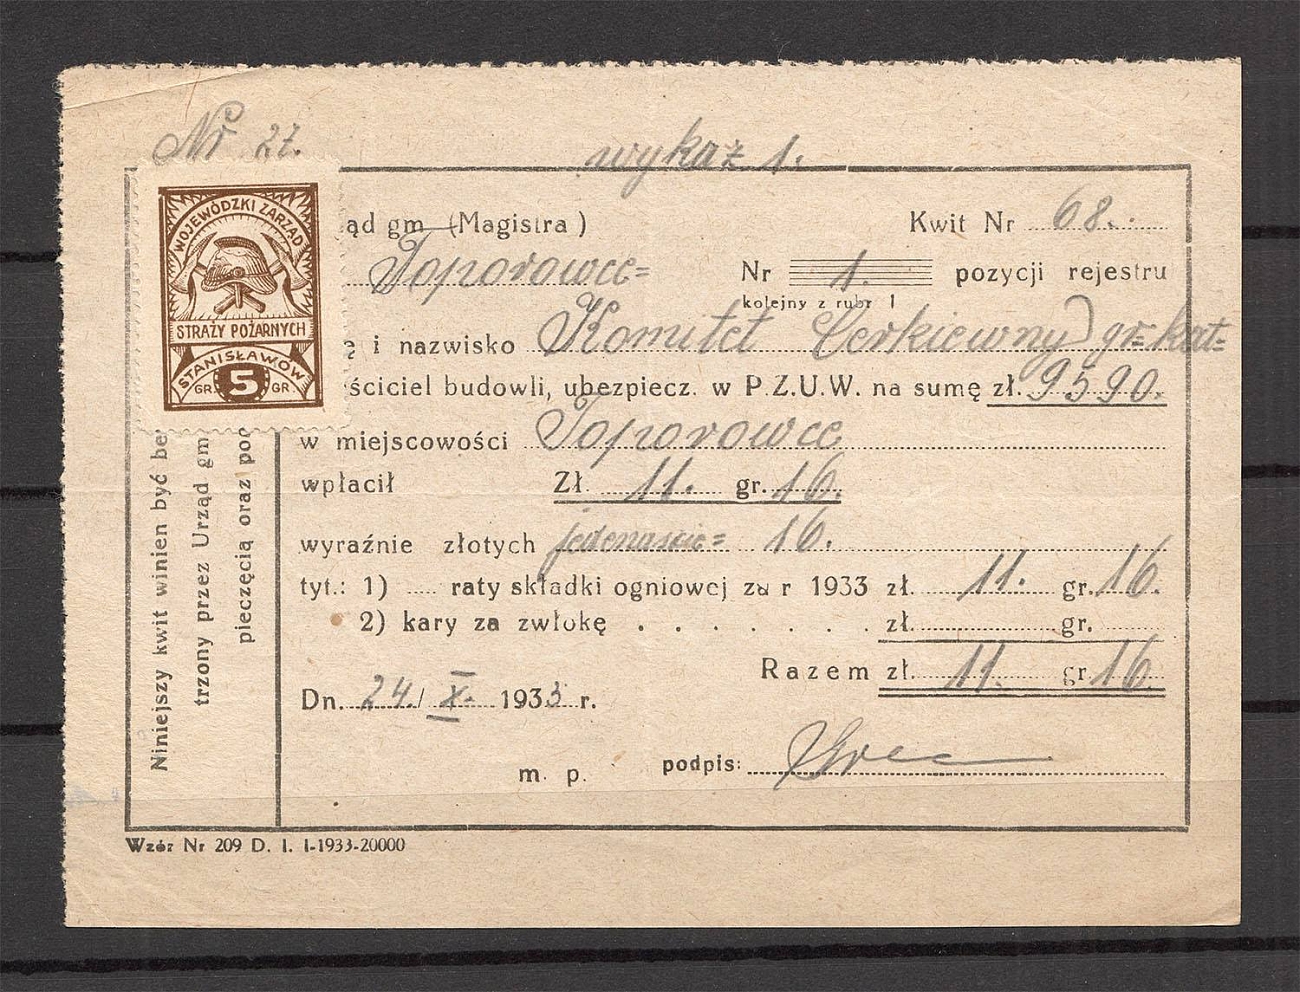 Nr 27.
wykaz 1.
WOJEWÓDZKI ZARZĄD
STRAŻY POŻARNYCH
STANISŁAWÓW
GR. 5 GR
ąd gm (Magistra)
Kwit Nr 68.
Toporowce=
Nr 1. pozycji rejestru
kolejny z rubr I
ę i nazwisko Komitet Cerkiewny gr=kat=
ściciel budowli, ubezpiecz. w P.Z.U.W. na sumę zł. 9590.
w miejscowości Toporowce
wpłacił Zł. 11. gr. 16.
wyraźnie złotych jedenaście= 16.
tyt.: 1) ..... raty składki ogniowej za r 1933 zł. 11. gr. 16.
2) kary za zwłokę . . . . . . . zł. gr.
Razem zł. 11. gr 16.
Dn. 24./X. 1933 r.
m. p. podpis:
Niniejszy kwit winien być be
trzony przez Urząd gm
pieczęcią oraz pod
Wzór Nr 209 D. I. I-1933-20000